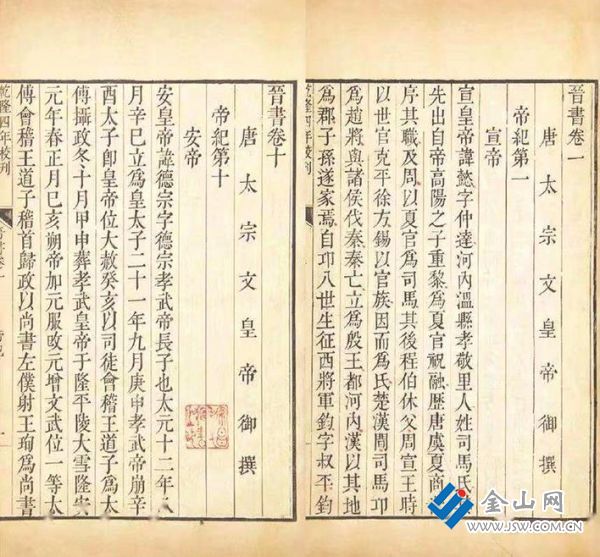 晉書卷一
唐太宗文皇帝御撰
帝紀第一
宣帝
宣皇帝諱懿字仲達河內溫縣孝敬里人姓司馬氏
先出自帝高陽之子重黎爲夏官祝融歷唐虞夏商
序其職及周以夏官爲司馬其後程伯休父周宣王時
以世官克平徐方錫以官族因而爲氏楚漢間司馬卬
爲趙將與諸侯伐秦秦亡立爲殷王都河內漢以其地
爲郡子孫遂家焉自卬八世生征西將軍鈞字叔平鈞
乾隆四年校刊
晉書卷十
唐太宗文皇帝御撰
帝紀第十
安帝
安皇帝諱德宗字德宗孝武帝長子也太元十二年八
月辛巳立爲皇太子二十一年九月庚申孝武帝崩辛
酉太子卽皇帝位大赦癸亥以司徒會稽王道子爲太
傅攝政冬十月甲申葬孝武皇帝于隆平陵大雪隆安
元年春正月己亥朔帝加元服改元增文武位一等太
傅會稽王道子稽首歸政以尚書左僕射王珣爲尚書
乾隆四年校刊
金山网
www.JSW.com.cn